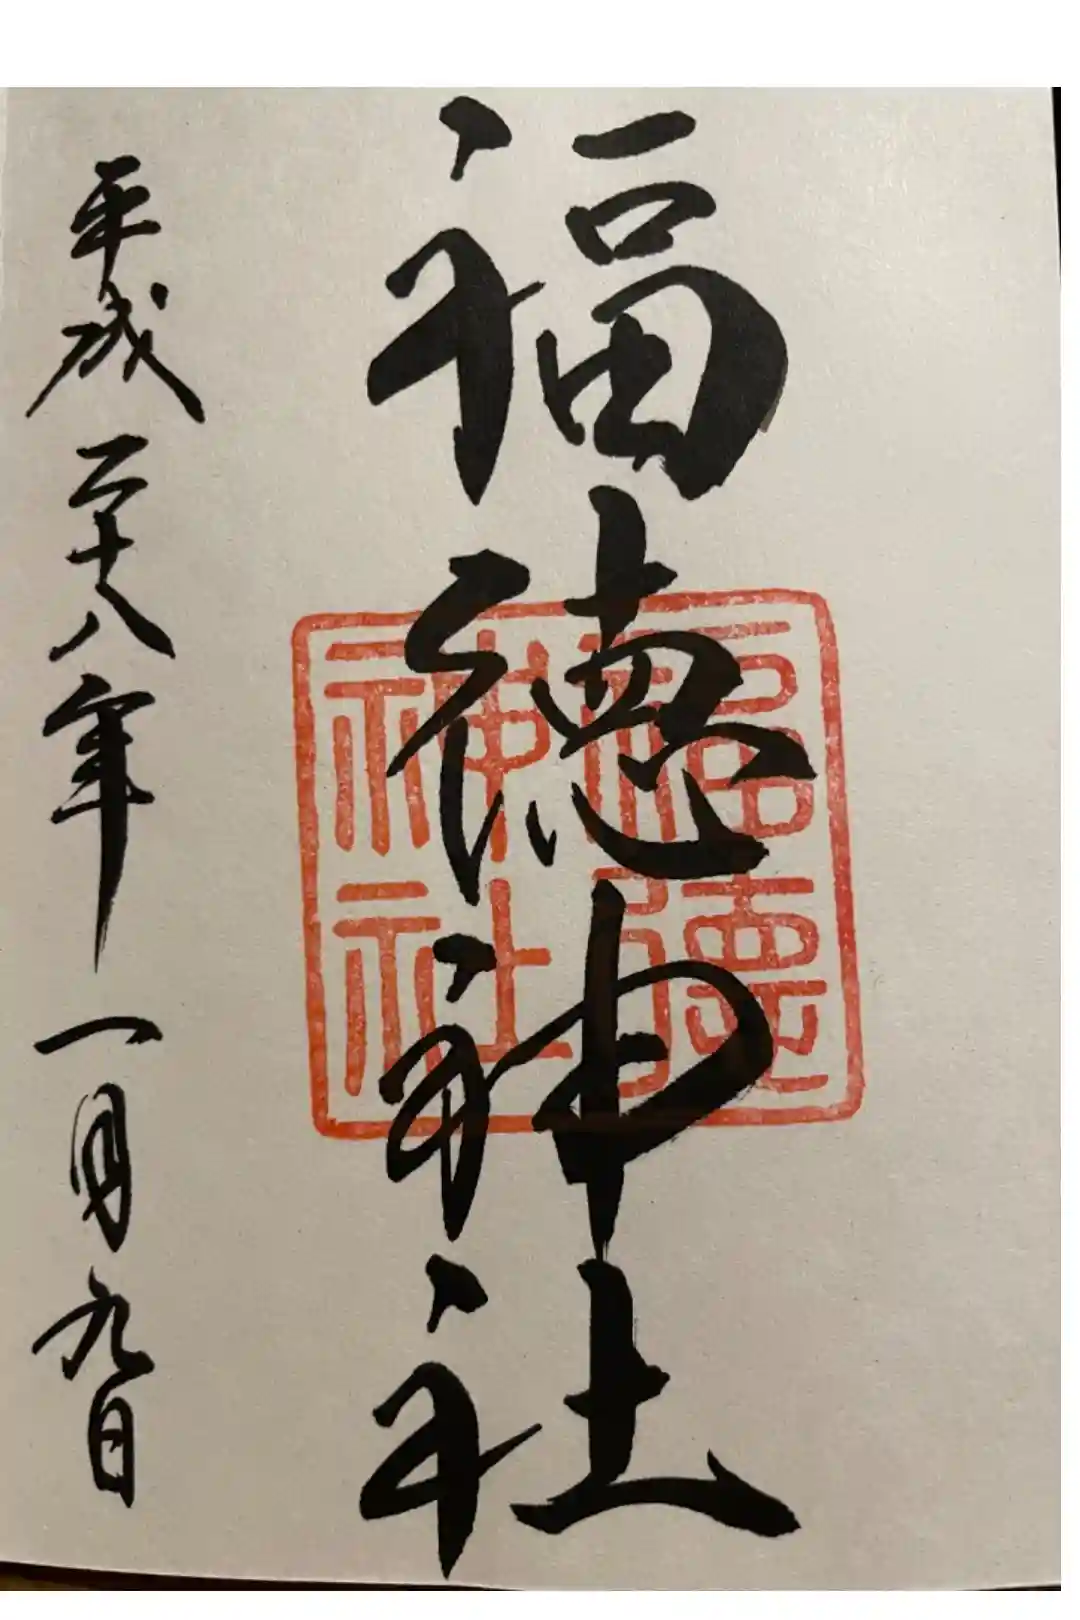 福徳神社
福徳神社
平成二十八年一月九日